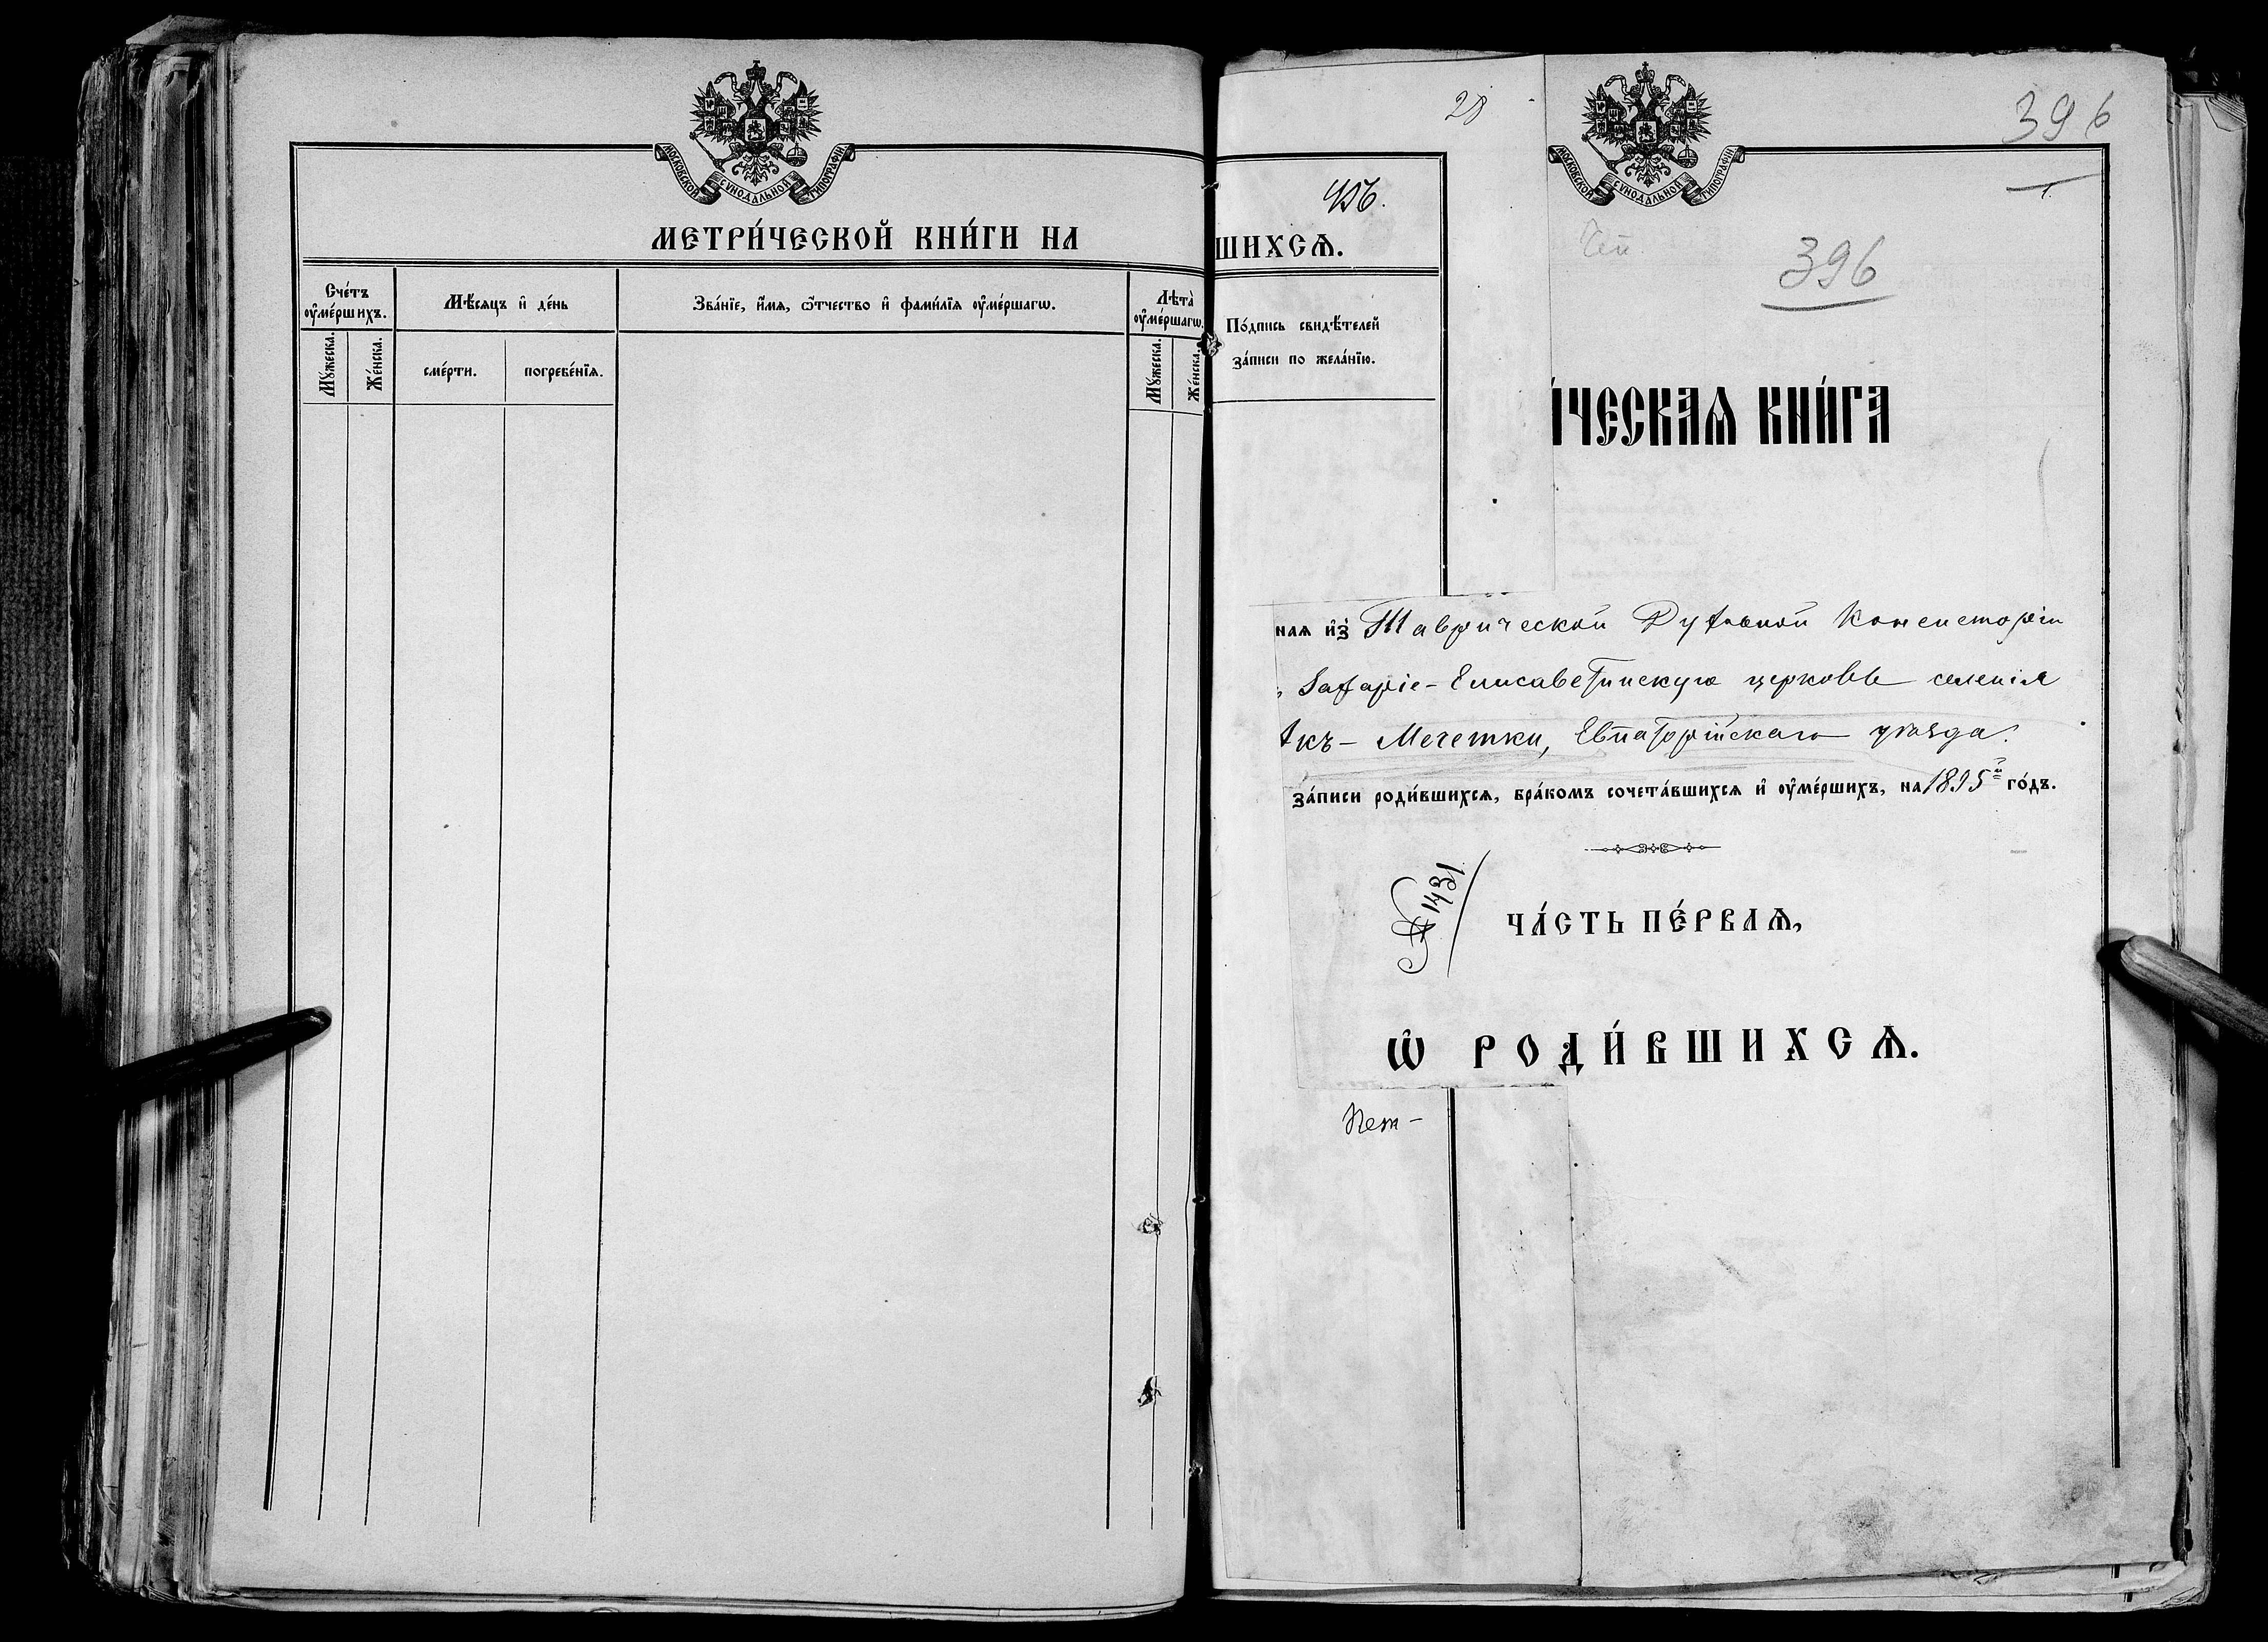 МОСКОВСКОЙ СѴНОДАЛЬНОЙ ТИПОГРАФІИ
МЕТРИ́ЧЕСКОЙ КНИ́ГИ НА
Сче́тъ ᲂу҆ме́ршихъ.
Мѣ́сяцъ и҆ де́нь
Зва́нїе, и҆́мѧ, ѻ҆́тчество и҆ фами́лїѧ ᲂу҆ме́ршагѡ.
Лѣта̀ ᲂу҆ме́ршагѡ.
Мꙋ́жеска.
Же́нска.
сме́рти.
погребе́нїѧ.
Мꙋ́жеска.
Же́нска.
28
ШИХСѦ.
По́дпись свидѣ́телей
за́писи по жела́нїю.
Нет-
МОСКОВСКОЙ СѴНОДАЛЬНОЙ ТИПОГРАФІИ
396
396
И́ЧЕСКАѦ КНИ́ГА
наѧ и҆з̾ Таврической Духовной Консисторіи
Захаріе-Елисаветинскую церковь селенія
Акъ-Мечетки, Евпаторійскаго уѣзда.
за́писи роди́вшихсѧ, бра́комъ сочета́вшихсѧ и҆ ᲂу҆ме́ршихъ, на 1895й го́дъ.
№ 1431
ЧА́СТЬ ПЕ́РВАѦ,
Ѡ҆ РОДИ́ВШИХСѦ.